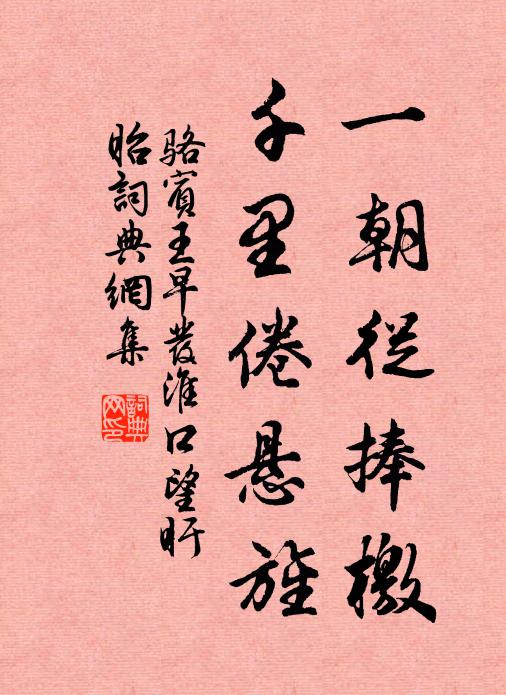 一朝從捧檄
千里倦悬旌
骆賓王早發淮口望盱
眙詞典網集
詞典
网印